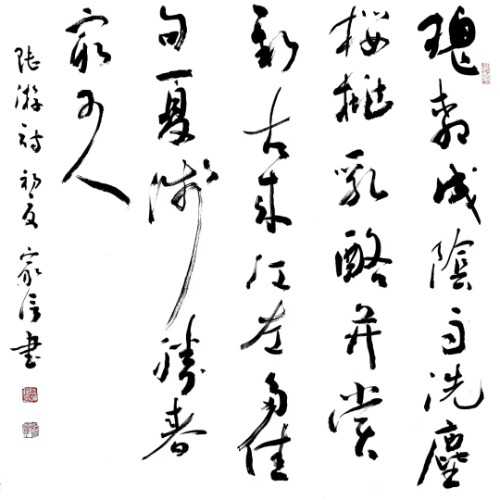 槐柳成陰雨洗塵
桜桃乳酪并嘗
新古來江左多佳
句夏淺勝春
最可人
陸游詩初夏家信書